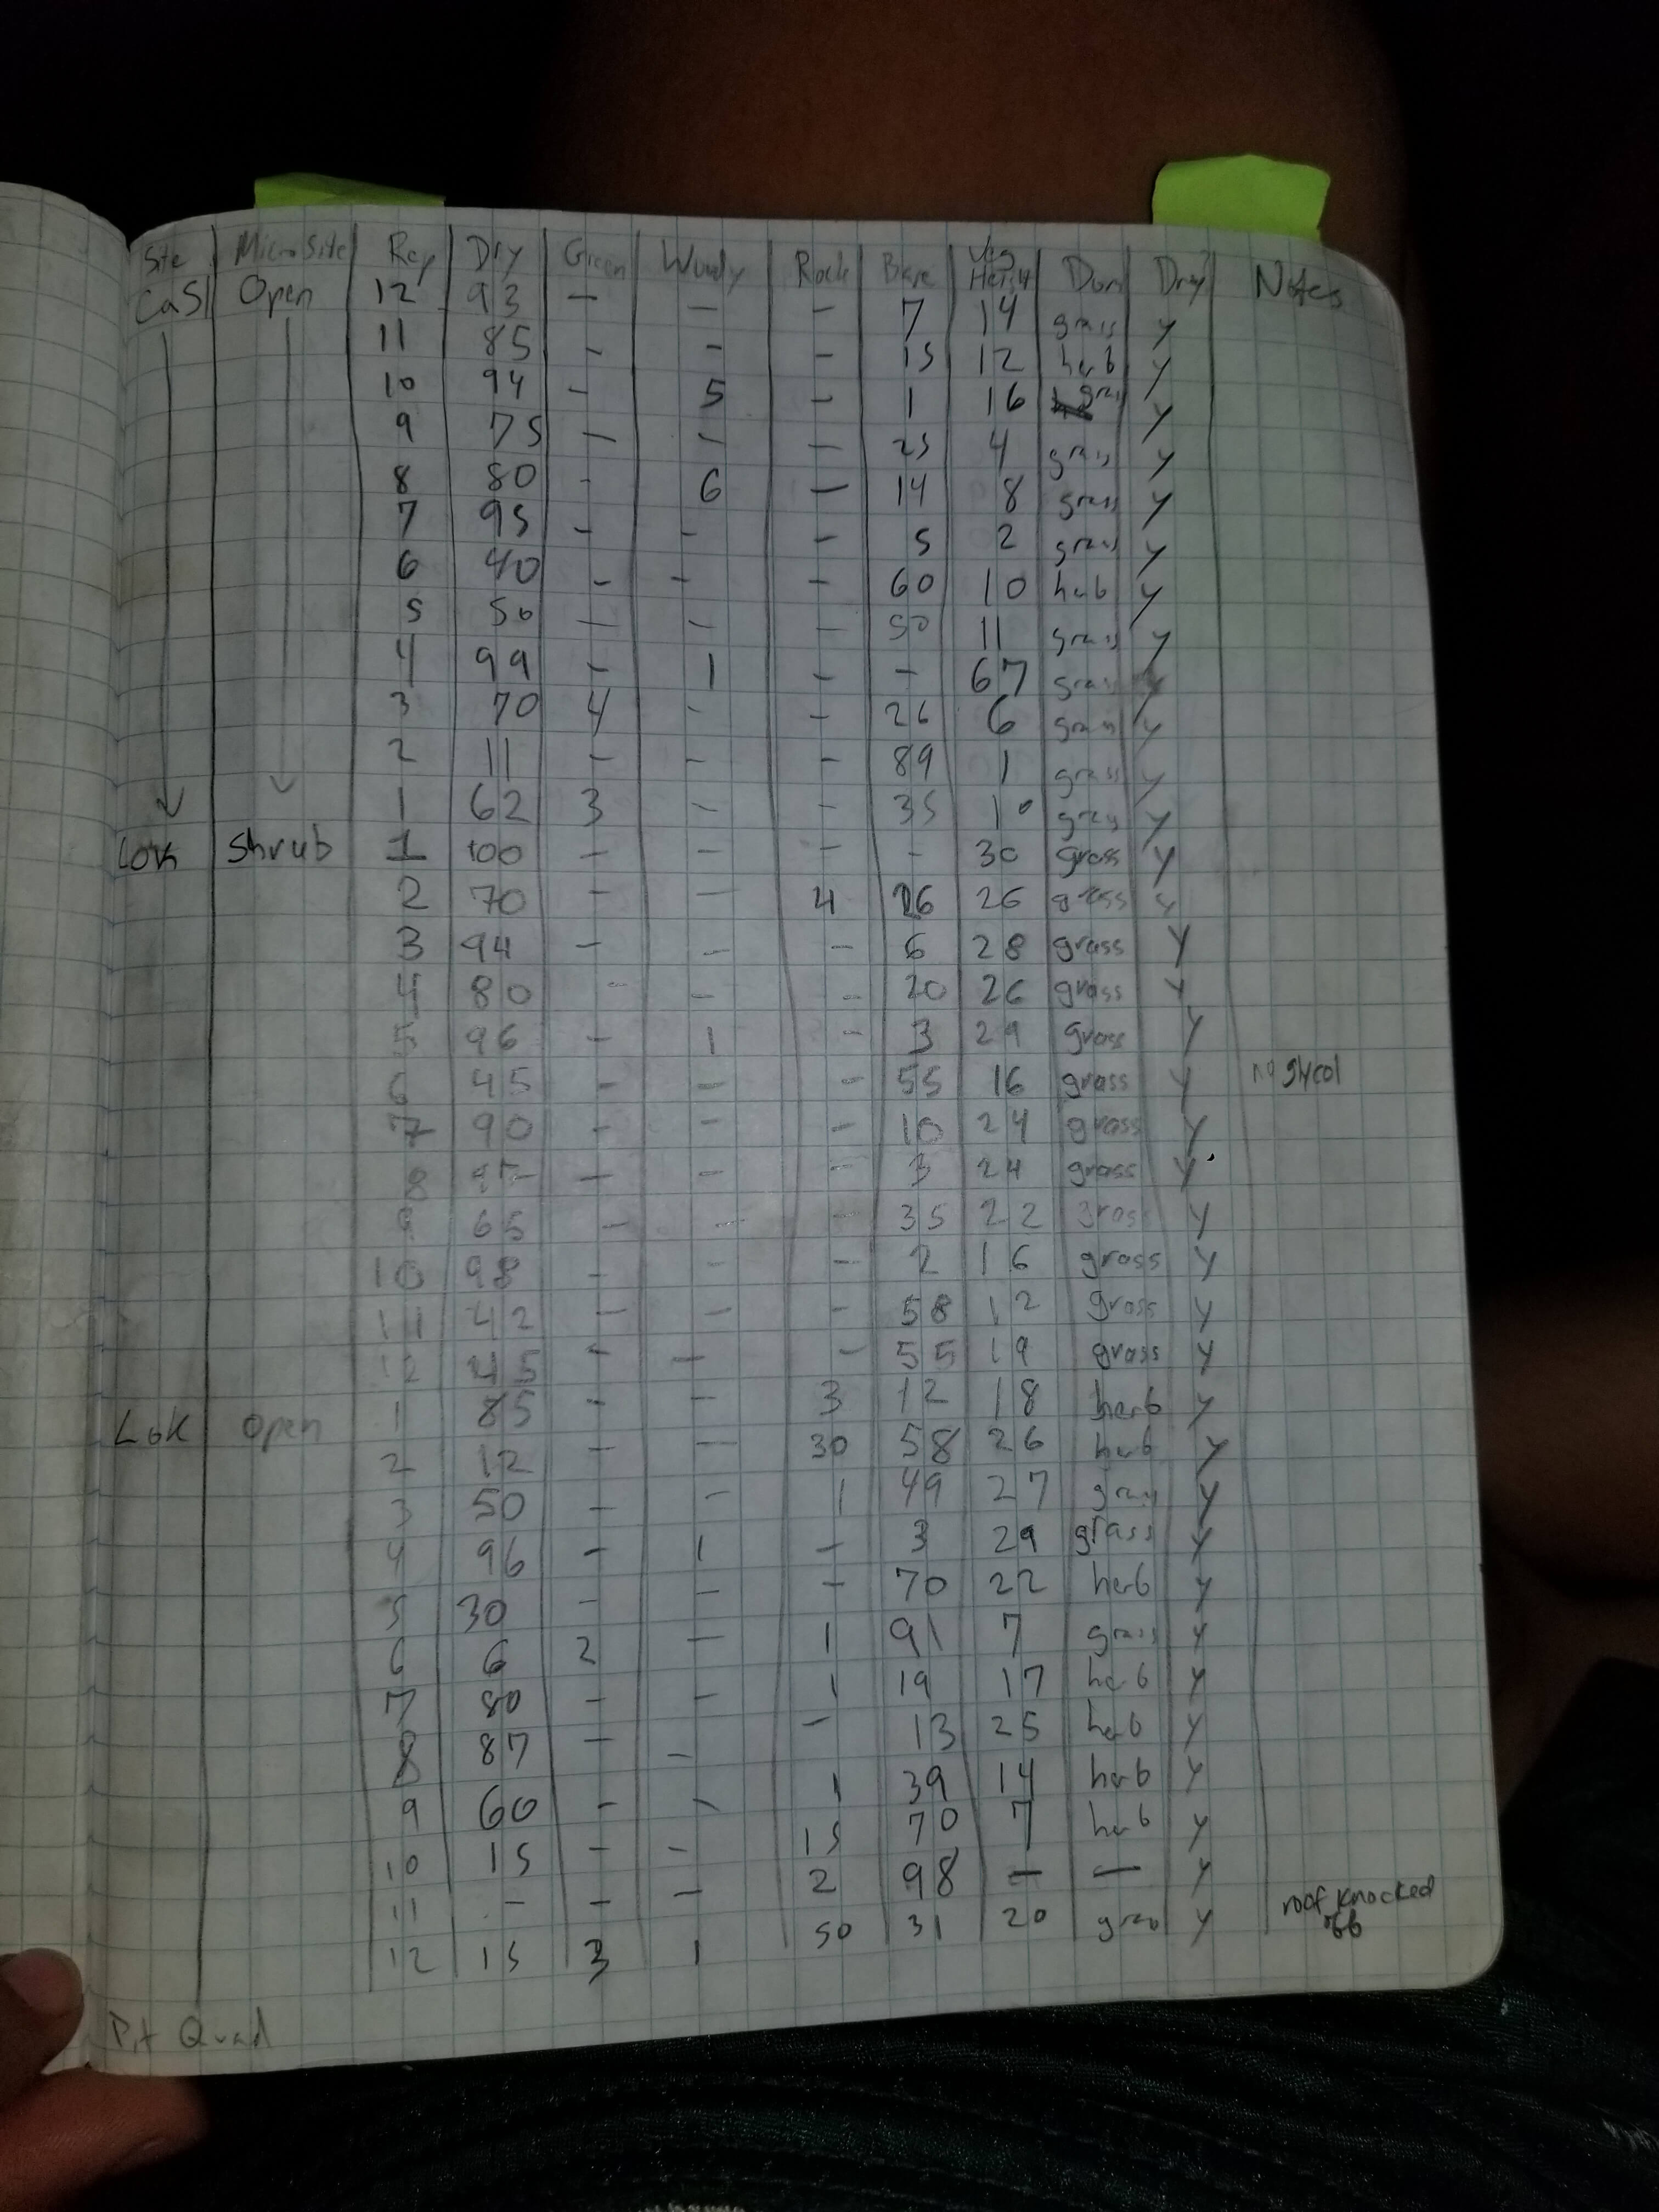 Site MicroSite Rep Dry Green Woody Rock Bare Veg Height Dom Dry? Notes
CaSl Open 12 93 - - - 7 14 grass y
11 85 - - - 15 12 herb y
10 94 - 5 - 1 16 gras y
9 75 - - - 25 4 grass y
8 80 - 6 - 14 8 grass y
7 95 - - - 5 2 grass y
6 40 - - - 60 10 herb y
5 50 - - - 50 11 grass y
4 99 - 1 - - 67 grass y
3 70 4 - - 26 6 grass y
2 11 - - - 89 1 grass y
1 62 3 - - 35 10 grass y
Lok Shrub 1 100 - - - - 30 grass y
2 70 - - 4 26 26 grass y
3 94 - - - 6 28 grass y
4 80 - - - 20 26 grass y
5 96 - 1 - 3 29 grass y
6 45 - - - 55 16 grass y no glycol
7 90 - - - 10 24 grass y
8 97 - - - 3 24 grass y
9 65 - - - 35 22 grass y
10 98 - - - 2 16 grass y
11 42 - - - 58 12 grass y
12 45 - - - 55 19 grass y
Lok Open 1 85 - - 3 12 18 herb y
2 12 - - 30 58 26 herb y
3 50 - - 1 49 27 grass y
4 96 - 1 - 3 29 grass y
5 30 - - - 70 22 herb y
6 6 2 - 1 91 7 grass y
7 80 - - 1 19 17 herb y
8 87 - - - 13 25 herb y
9 60 - - 1 39 14 herb y
10 15 - - 15 70 7 herb y
11 - - - 2 98 - - y
12 15 3 1 50 31 20 gras y roof knocked off
Pit Quad